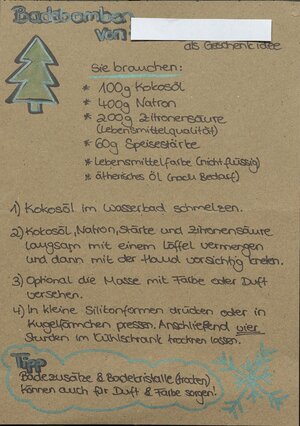 Badebomben
von
als Geschenkidee
Sie brauchen:
* 100g Kokosöl
* 400g Natron
* 200g Zitronensäure
(Lebensmittelqualität)
* 60g Speisestärke
* Lebensmittelfarbe (nicht flüssig)
* ätherisches Öl (nach Bedarf)
1) Kokosöl im Wasserbad schmelzen.
2) Kokosöl, Natron, Stärke und Zitronensäure
langsam mit einem Löffel vermengen
und dann mit der Hand vorsichtig kneten.
3) Optional die Masse mit Farbe oder Duft
versehen.
4) In kleine Silikonformen drücken oder in
Kugelförmchen pressen. Anschließend vier
Stunden im Kühlschrank trocknen lassen.
Tipp
Badezusätze & Badekristalle (trocken)
können auch für Duft & Farbe sorgen!